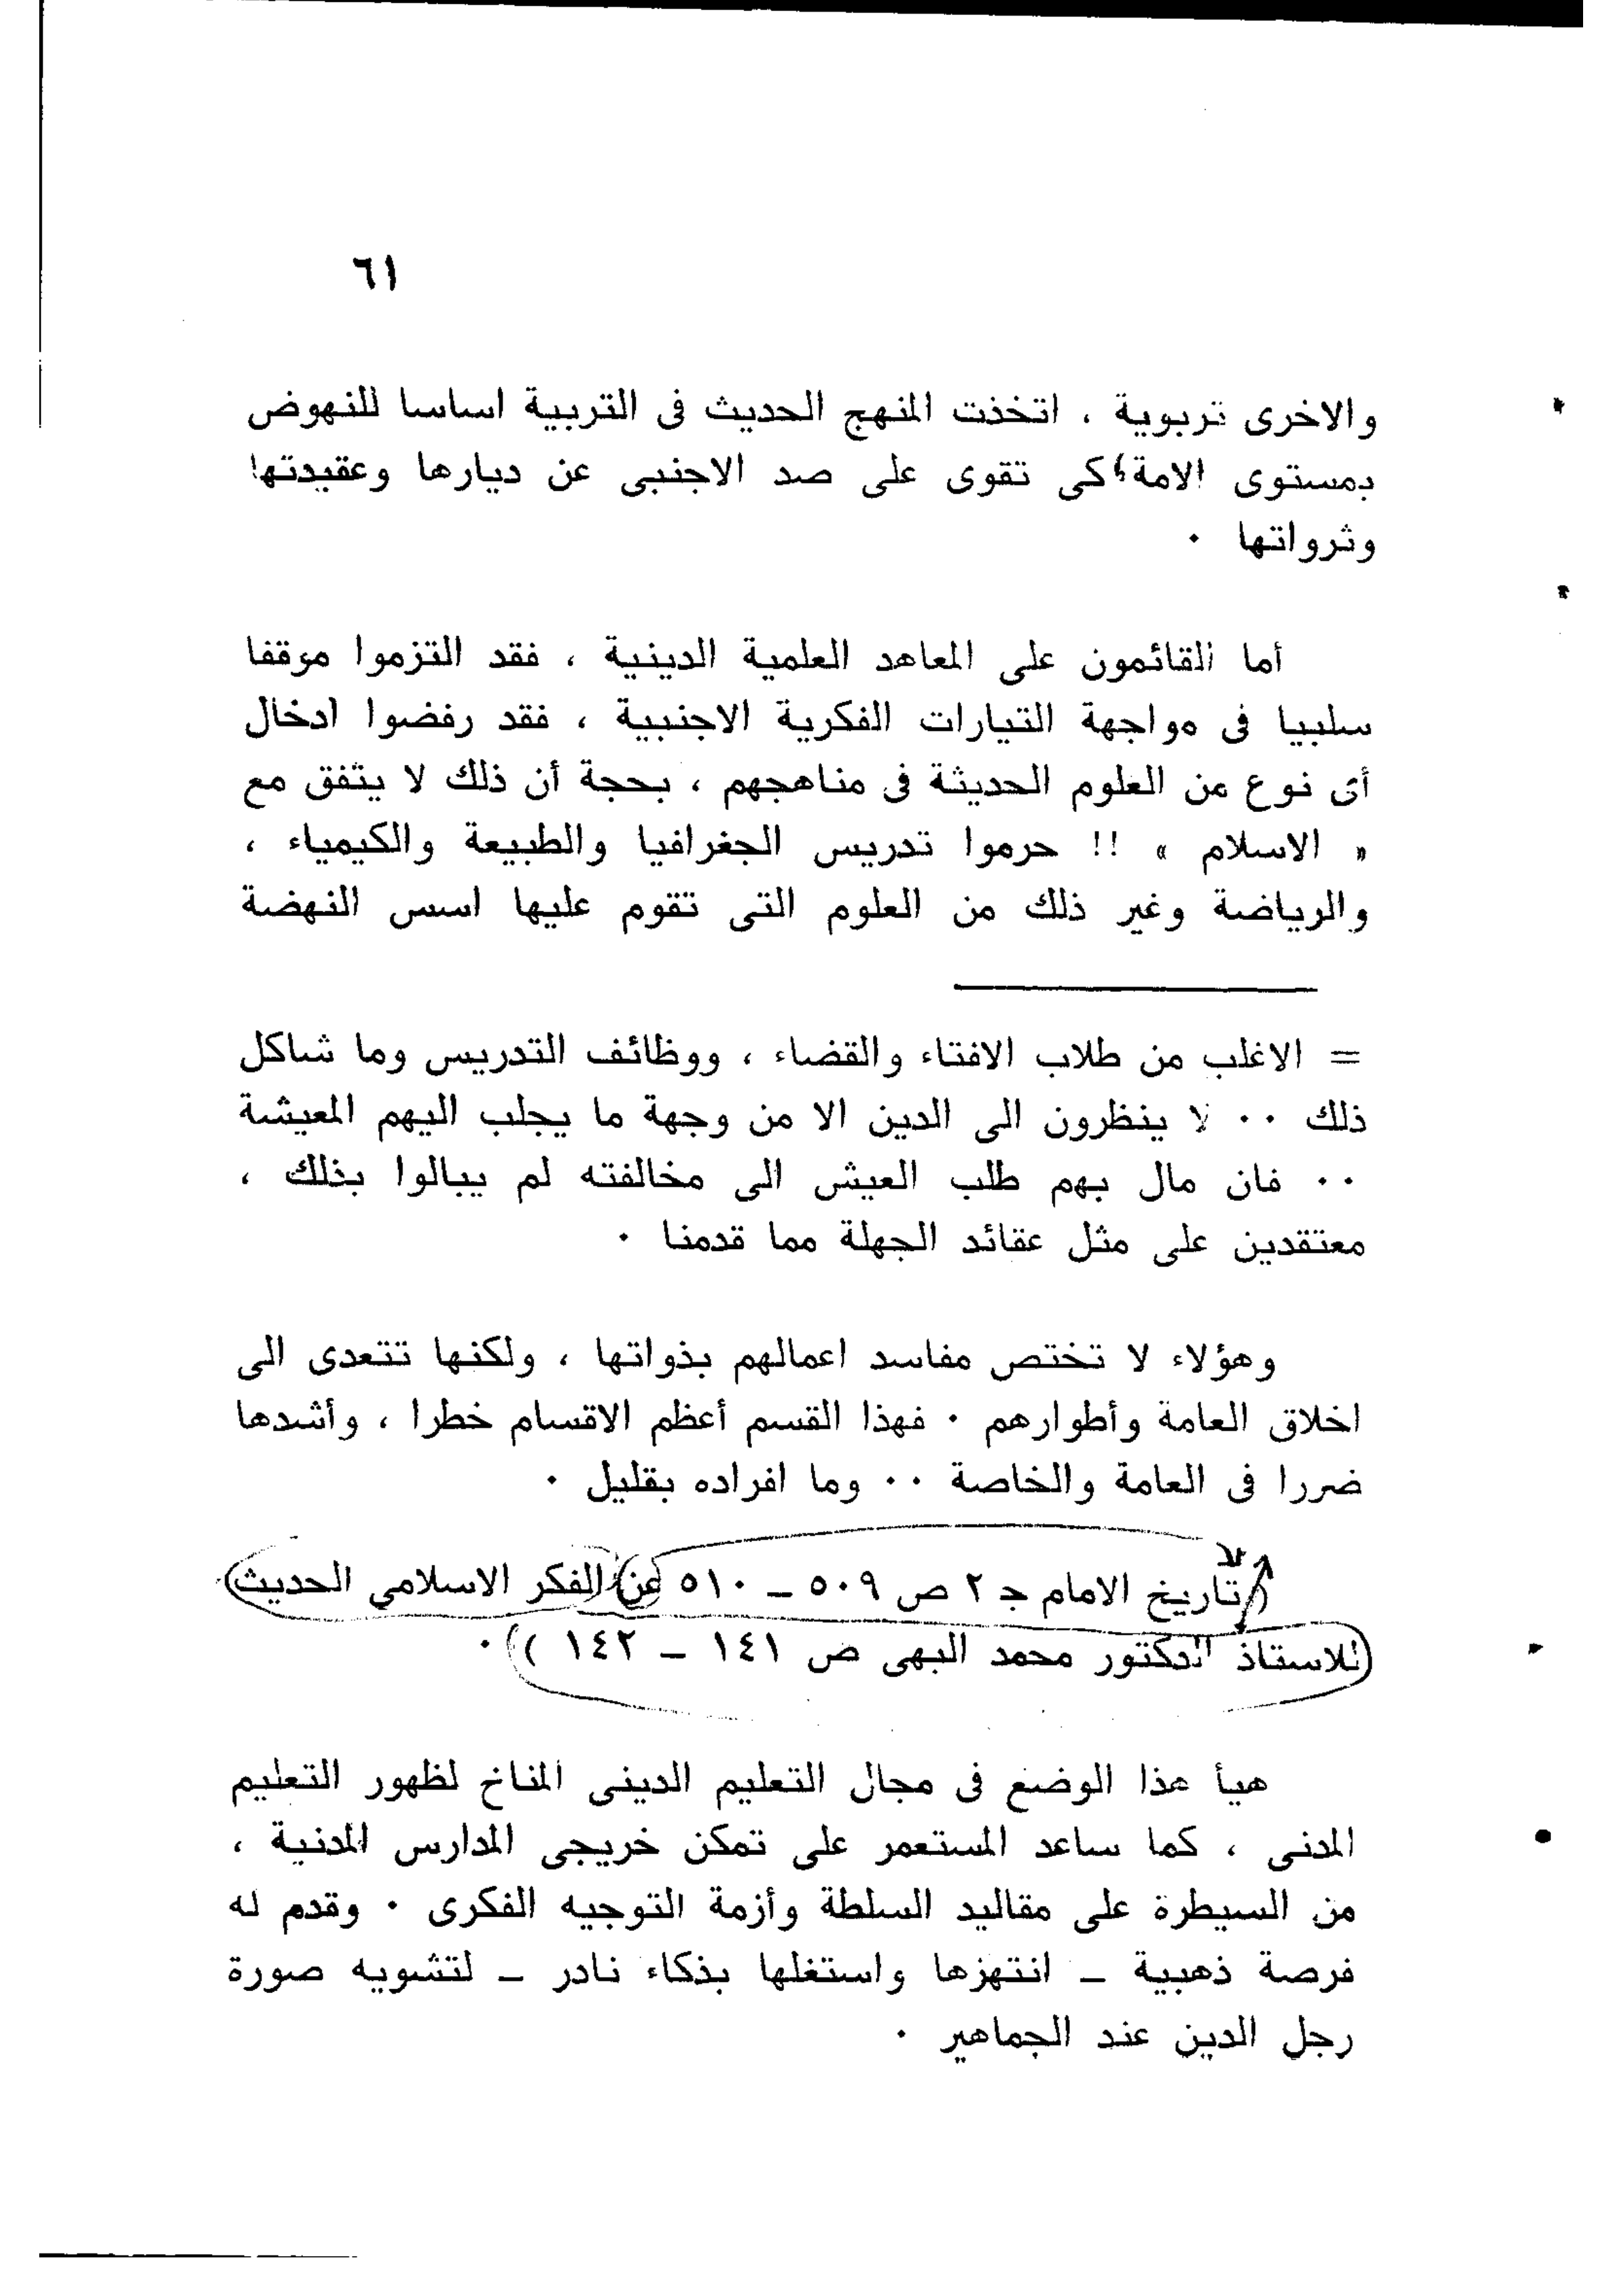 ٦١
والاخرى تربوية ، اتخذت المنهج الحديث فى التربية اساسا للنهوض
بمستوى الامة ، كى تقوى على صد الاجنبى عن ديارها وعقيدتها
وثرواتها ٠
أما القائمون على المعاهد العلمية الدينية ، فقد التزموا موقفا
سلبيا فى مواجهة التيارات الفكرية الاجنبية ، فقد رفضوا ادخال
أى نوع من العلوم الحديثة فى مناهجهم ، بحجة أن ذلك لا يتفق مع
« الاسلام » !! حرموا تدريس الجغرافيا والطبيعة والكيمياء ،
والرياضة وغير ذلك من العلوم التى تقوم عليها اسس النهضة
= الاغلب من طلاب الافتاء والقضاء ، ووظائف التدريس وما شاكل
ذلك ٠٠ لا ينظرون الى الدين الا من وجهة ما يجلب اليهم المعيشة
٠٠ فان مال بهم طلب العيش الى مخالفته لم يبالوا بذلك ،
معتقدين على مثل عقائد الجهلة مما قدمنا ٠
وهؤلاء لا تختص مفاسد اعمالهم بذواتها ، ولكنها تتعدى الى
اخلاق العامة وأطوارهم ٠ فهذا القسم أعظم الاقسام خطرا ، وأشدها
ضررا فى العامة والخاصة ٠٠ وما افراده بقليل ٠
( تاريخ الامام جـ ٢ ص ٥٠٩ – ٥١٠ عن الفكر الاسلامي الحديث
للاستاذ الدكتور محمد البهى ص ١٤١ – ١٤٢ ) ٠
هيأ هذا الوضع فى مجال التعليم الدينى المناخ لظهور التعليم
المدنى ، كما ساعد المستعمر على تمكن خريجى المدارس المدنية ،
من السيطرة على مقاليد السلطة وأزمة التوجيه الفكرى ٠ وقدم له
فرصة ذهبية – انتهزها واستغلها بذكاء نادر – لتشويه صورة
رجل الدين عند الجماهير ٠